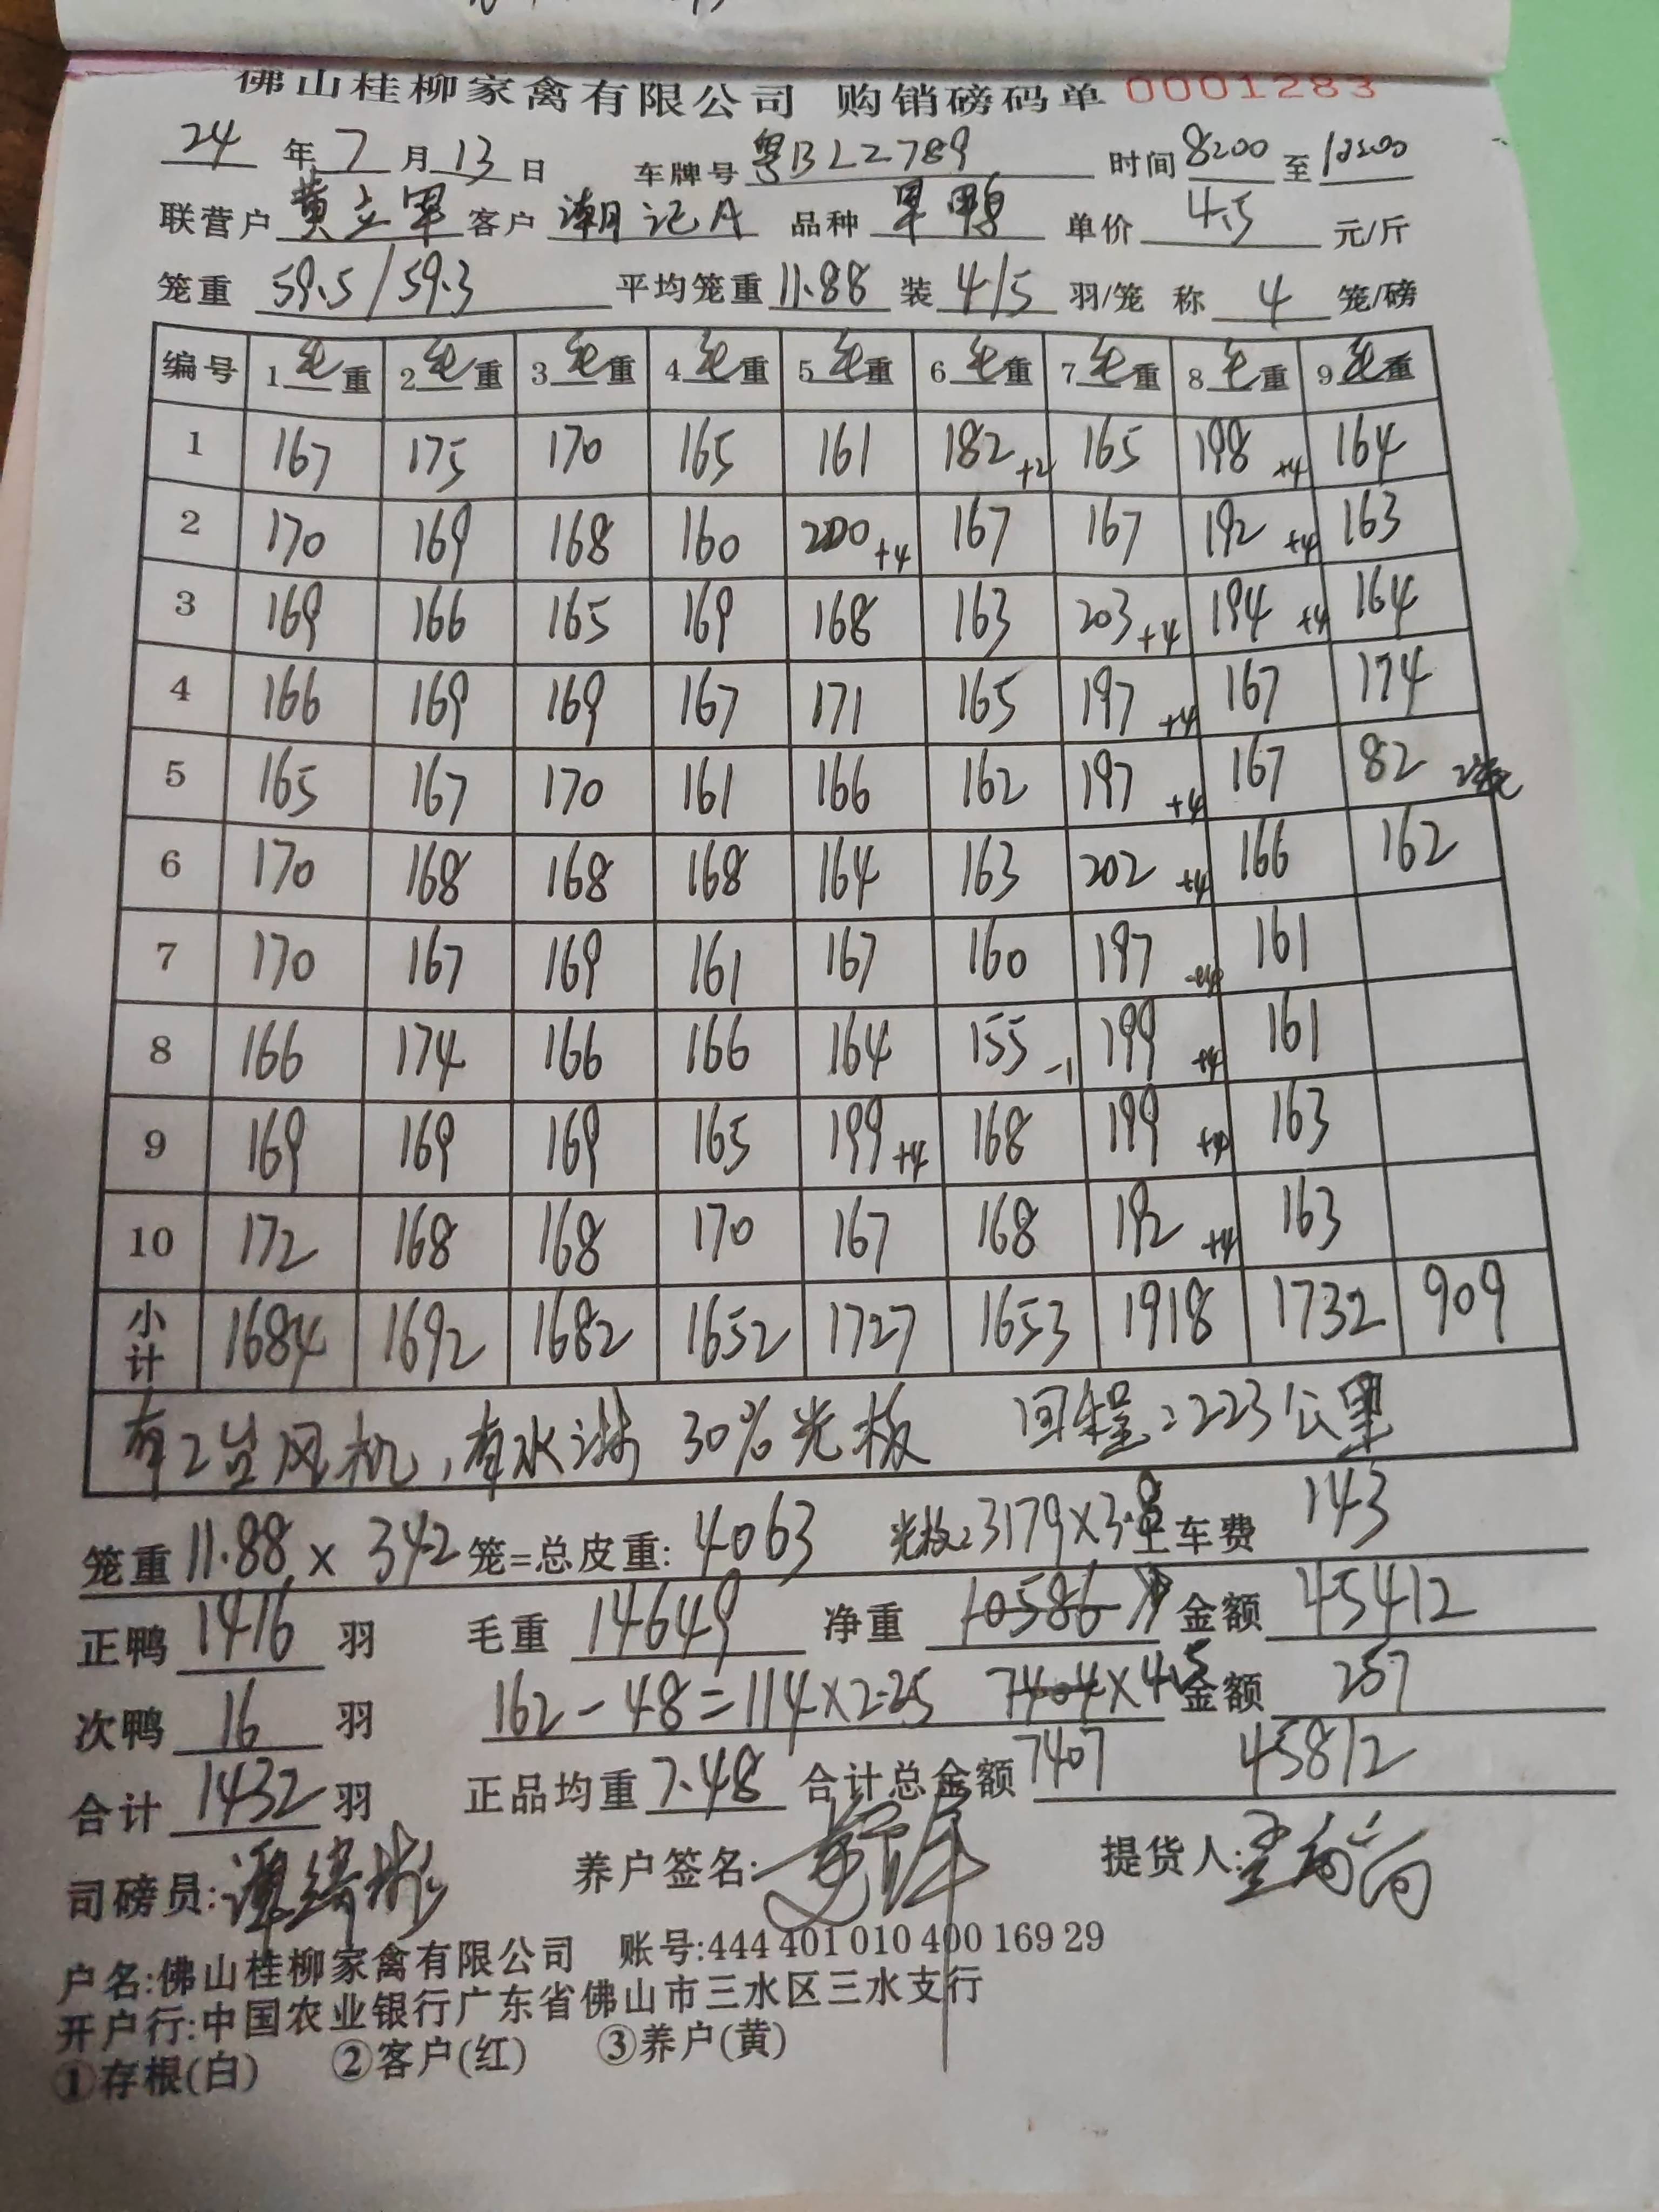 佛山桂柳家禽有限公司 购销磅码单 0001283
24 年 7 月 13 日 车牌号 粤BL2789 时间 8:00 至 12:00
联营户 黄立军 客户 潮记A 品种 旱鸭 单价 4.5 元/斤
笼重 59.5/59.3 平均笼重 11.88 装 4/5 羽/笼 称 4 笼/磅
编号 1毛重 2毛重 3毛重 4毛重 5毛重 6毛重 7毛重 8毛重 9毛重
1 167 175 170 165 161 182+2 165 198+4 164
2 170 169 168 160 200+4 167 167 192+4 163
3 169 166 165 169 168 163 203+4 194+4 164
4 166 169 169 167 171 165 197+4 167 174
5 165 167 170 161 166 162 197+4 167 82 2笼
6 170 168 168 168 164 163 202+4 166 162
7 170 167 169 161 167 160 197 161
8 166 174 166 166 164 155-1 199+4 161
9 169 169 169 165 199+4 168 199+4 163
10 172 168 168 170 167 168 192+4 163
小计 1684 1692 1682 1652 1727 1653 1918 1732 909
有2台风机,有水淋 30%光板 回程:223公里
笼重 11.88 × 342 笼=总皮重: 4063 光板:3179×3.8 车费 143
正鸭 1416 羽 毛重 14649 净重 10586 金额 45412
次鸭 16 羽 162-48=114×2.25 7404×4.5 金额 257
合计 1432 羽 正品均重 7.48 合计总金额 7407 45812
司磅员: 养户签名: 提货人:
户名:佛山桂柳家禽有限公司 账号:444 401 010 400 169 29
开户行:中国农业银行广东省佛山市三水区三水支行
①存根(白) ②客户(红) ③养户(黄)